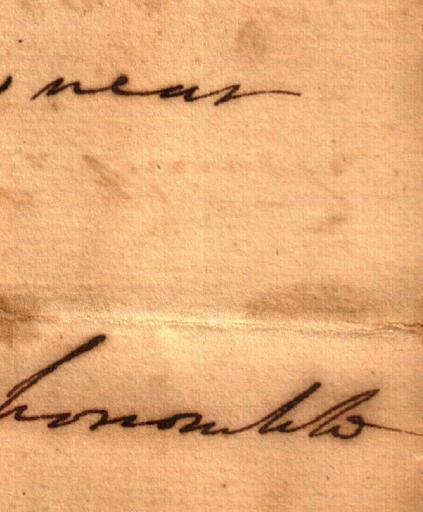 near
honorable